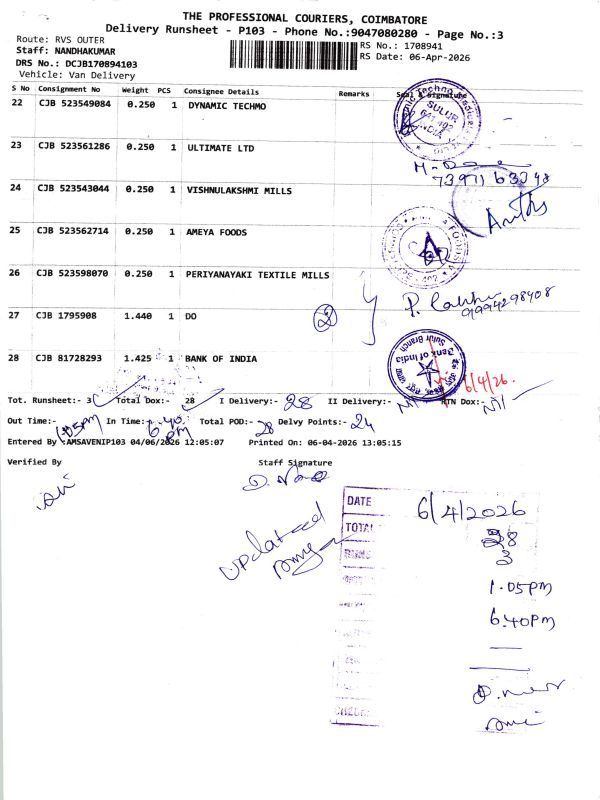 THE PROFESSIONAL COURIERS, COIMBATORE
Delivery Runsheet - P103 - Phone No.:9047080280 - Page No.:3
Route: RVS OUTER
Staff: NANDHAKUMAR
DRS No.: DCJB170894103
Vehicle: Van Delivery
RS No.: 1708941
RS Date: 06-Apr-2026
S No Consignment No Weight PCS Consignee Details Remarks Seal & Signature
22 CJB 523549084 0.250 1 DYNAMIC TECHMO
SULUR
641 402
INDIA
23 CJB 523561286 0.250 1 ULTIMATE LTD
24 CJB 523543044 0.250 1 VISHNULAKSHMI MILLS
25 CJB 523562714 0.250 1 AMEYA FOODS
26 CJB 523598070 0.250 1 PERIYANAYAKI TEXTILE MILLS
9994298408
27 CJB 1795908 1.440 1 DO
2
28 CJB 81728293 1.425 1 BANK OF INDIA
Bank of India
Sulur Branch
6/4/26.
Tot. Runsheet:- 3 Total Dox:- 28 I Delivery:- 28 II Delivery:- Nil RTN Dox:- Nil
Out Time:- 1.05pm In Time:- 6.40 pm Total POD:- 28 Delvy Points:- 24
Entered By :AMSAVENIP103 04/06/2026 12:05:07 Printed On: 06-04-2026 13:05:15
Verified By Staff Signature
Updated
DATE 6/4/2026
TOTAL 28
3
1.05pm
6.40pm